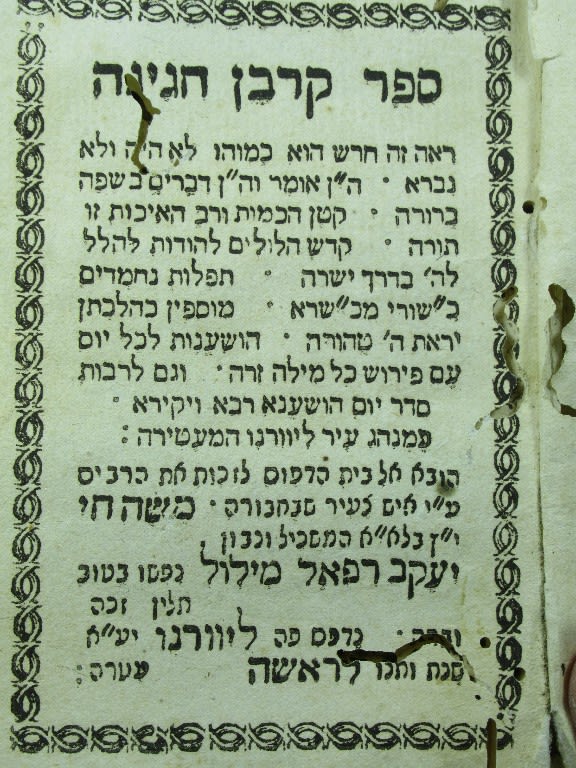 ספר קרבן חגיגה
ראה זה חדש הוא כמוהו לא היה ולא
נברא · ה"ן אומר וה"ן דברים בשפה
ברורה · קטן הכמות ורב האיכות זו
תורה · קדש הלולים להודות להלל
לה' בדרך ישרה · תפלות נחמדים
כ"שורי מכ"שרא · מוספין כהלכתן
יראת ה' טהורה · הושענות לכל יום
עם פירוש כל מילה זרה · וגם לרבות
סדר יום הושענא רבא ויקירא ·
כמנהג עיר ליוורנו המעטירה :
הובא אל בית הדפוס לזכות את הרבים
ע"י איש צעיר שבחבורה · משה חי
י"ץ בלא"א המשכיל ונבון ,
יעקב רפאל מילול נפשו בטוב
תלין זכה
וברה · נדפס פה ליוורנו יע"א
שנת לראשה עטרה :